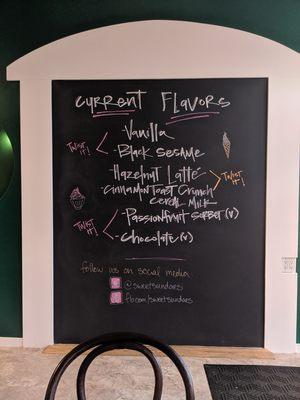 Current Flavors
Vanilla
TWIST IT!
- Black Sesame
Hazelnut Latte
TWIST IT!
- Cinnamon Toast Crunch
Cereal Milk
- Passionfruit Sorbet (v)
TWIST IT!
- Chocolate (v)
follow us on social media
@sweetsundaes
fb.com/sweetsundaes